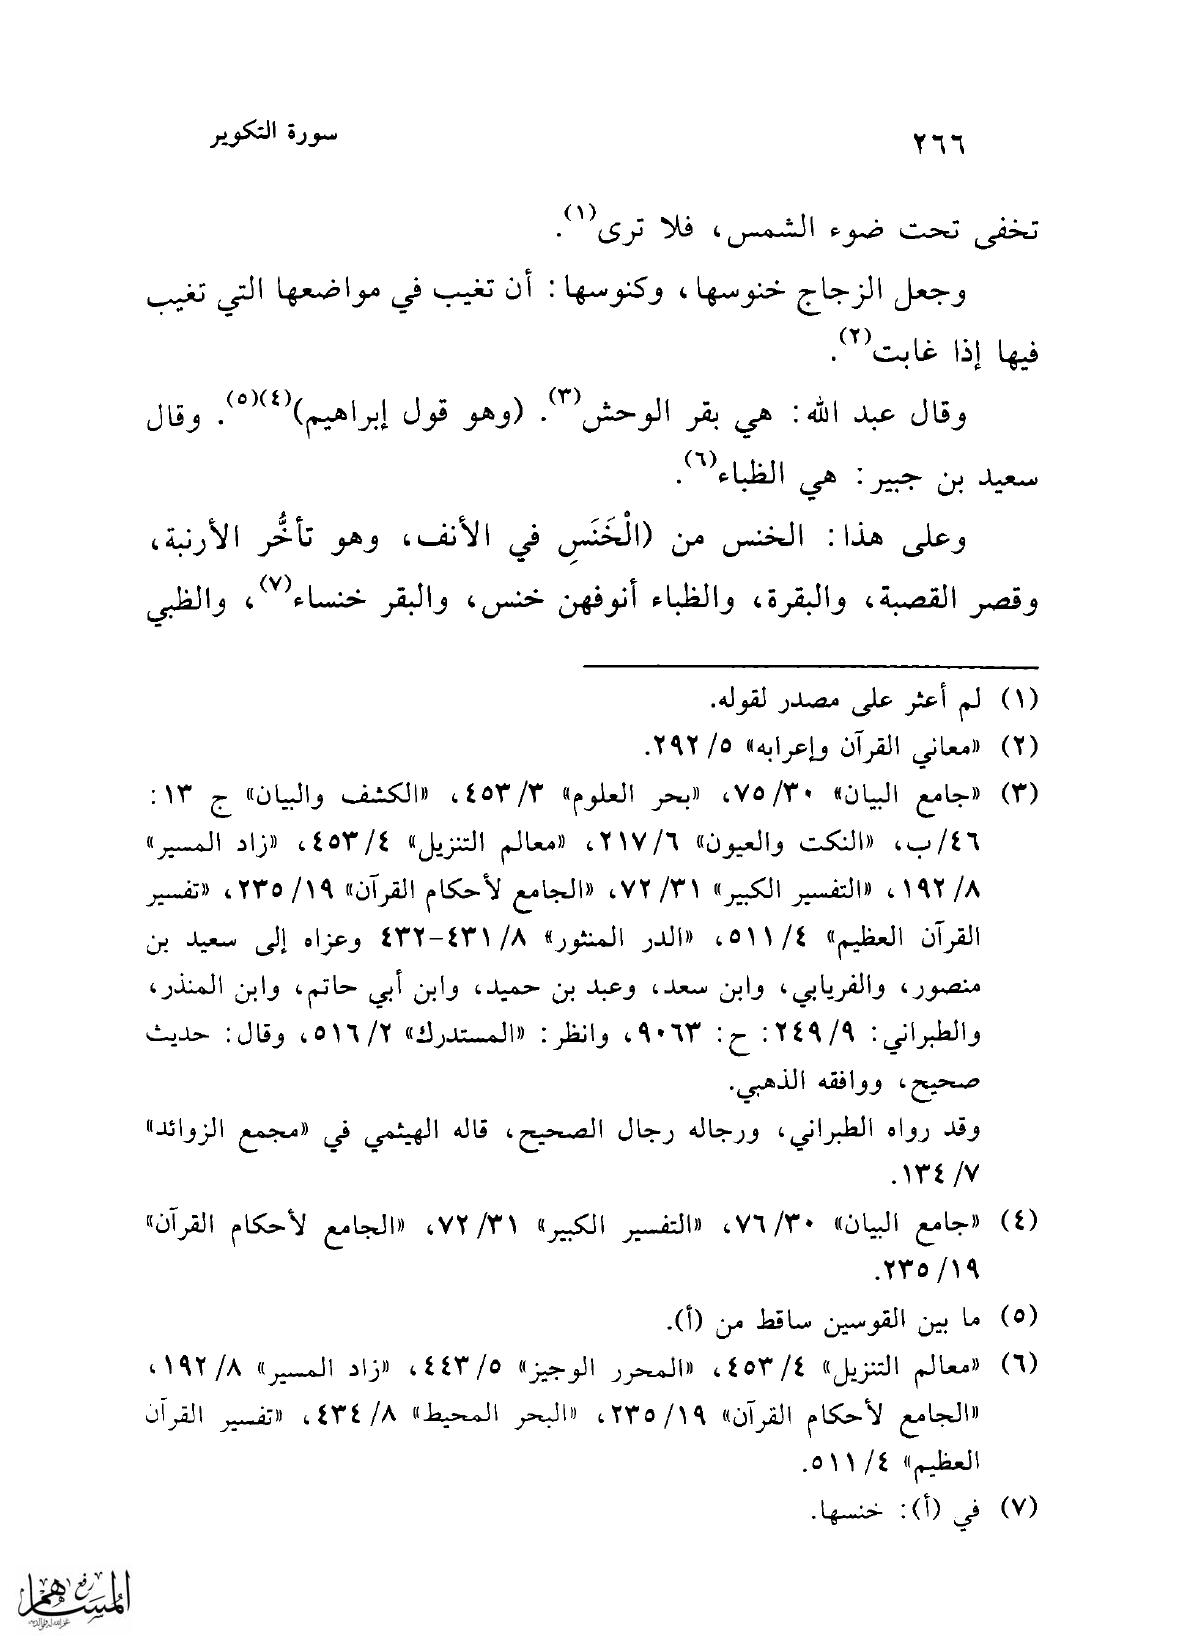 ٢٦٦ سورة التكوير
تخفى تحت ضوء الشمس، فلا ترى(١).
وجعل الزجاج خنوسها، وكنوسها: أن تغيب في مواضعها التي تغيب
فيها إذا غابت(٢).
وقال عبد الله: هي بقر الوحش(٣). (وهو قول إبراهيم)(٤)(٥). وقال
سعيد بن جبير: هي الظباء(٦).
وعلى هذا: الخنس من (الْخَنَسِ في الأنف، وهو تأخُّر الأرنبة،
وقصر القصبة، والبقرة، والظباء أنوفهن خنس، والبقر خنساء(٧)، والظبي
(١) لم أعثر على مصدر لقوله.
(٢) «معاني القرآن وإعرابه» ٥/ ٢٩٢.
(٣) «جامع البيان» ٣٠/ ٧٥، «بحر العلوم» ٣/ ٤٥٣، «الكشف والبيان» ج ١٣:
٤٦/ب، «النكت والعيون» ٦/ ٢١٧، «معالم التنزيل» ٤/ ٤٥٣، «زاد المسير»
٨/ ١٩٢، «التفسير الكبير» ٣١/ ٧٢، «الجامع لأحكام القرآن» ١٩/ ٢٣٥، «تفسير
القرآن العظيم» ٤/ ٥١١، «الدر المنثور» ٨/ ٤٣١-٤٣٢ وعزاه إلى سعيد بن
منصور، والفريابي، وابن سعد، وعبد بن حميد، وابن أبي حاتم، وابن المنذر،
والطبراني: ٩/ ٢٤٩: ح: ٩٠٦٣، وانظر: «المستدرك» ٢/ ٥١٦، وقال: حديث
صحيح، ووافقه الذهبي.
وقد رواه الطبراني، ورجاله رجال الصحيح، قاله الهيثمي في «مجمع الزوائد»
٧/ ١٣٤.
(٤) «جامع البيان» ٣٠/ ٧٦، «التفسير الكبير» ٣١/ ٧٢، «الجامع لأحكام القرآن»
١٩/ ٢٣٥.
(٥) ما بين القوسين ساقط من (أ).
(٦) «معالم التنزيل» ٤/ ٤٥٣، «المحرر الوجيز» ٥/ ٤٤٣، «زاد المسير» ٨/ ١٩٢،
«الجامع لأحكام القرآن» ١٩/ ٢٣٥، «البحر المحيط» ٨/ ٤٣٤، «تفسير القرآن
العظيم» ٤/ ٥١١.
(٧) في (أ): خنسها.